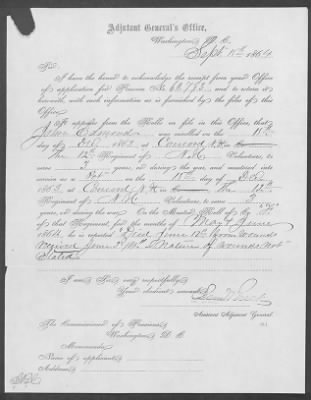 Adjutant General's Office,
Washington, D. C.,
Sept. 1864
Sir:
I have the honor to acknowledge the receipt from your Office
of application for Pension No. and to return it
herewith, with such information as is furnished by the files of this
Office.
It appears from the Rolls on file in this Office, that
John Edmonds was enrolled on the 15th
day of Dec, 1863, at Concord N.H. in
the 12th Regiment of N.H. Volunteers, to
serve 3 years, or during the war, and mustered into
service as a on the 15th day of Dec
1863, at Concord N.H in the 12th
Regiment of N.H. Volunteers, to serve 3
years, or during the war. On the Muster Roll of
Regiment, for the months of May & June
1864, he is reported "Died June 12th from wounds
received June 3 Nature of wounds not
Stated
I am, Sir, very respectfully,
Your obedient servant,
Assistant Adjutant General
The Commissioner of Pensions,
Washington, D. C.
Memoranda:
Name of applicant
Address